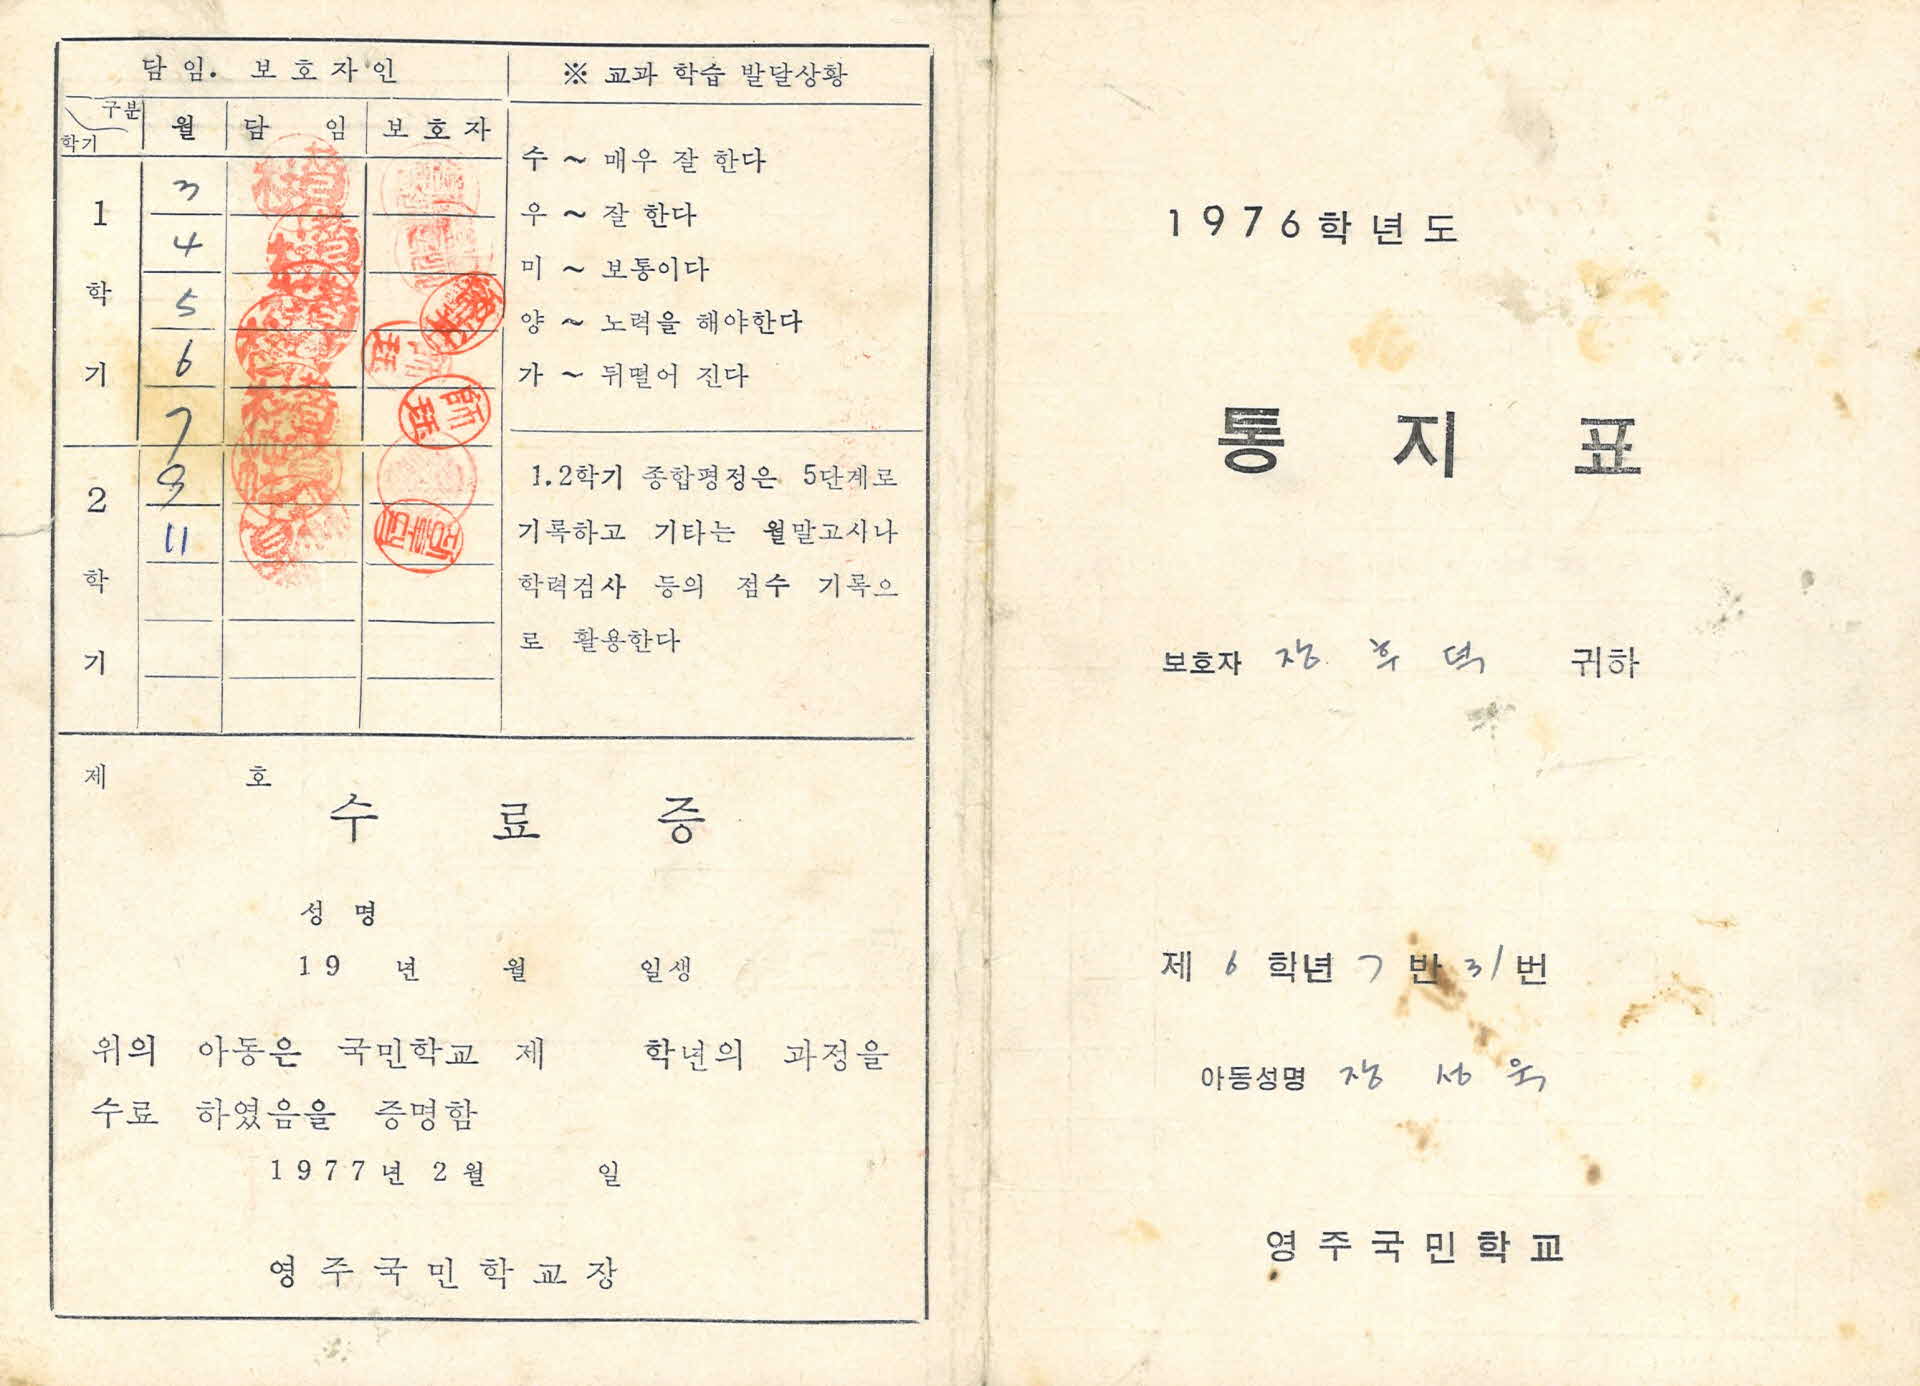 담임. 보호자인
구분
학기
월
담 임
보호자
1학기
3
4
5
6
7
2학기
9
11
※ 교과 학습 발달상황
수 ~ 매우 잘 한다
우 ~ 잘 한다
미 ~ 보통이다
양 ~ 노력을 해야한다
가 ~ 뒤떨어 진다
1.2학기 종합평정은 5단계로
기록하고 기타는 월말고사나
학력검사 등의 점수 기록으
로 활용한다
제 호
수료증
성 명
19 년 월 일생
위의 아동은 국민학교 제 학년의 과정을
수료 하였음을 증명함
1977년 2월 일
영주국민학교장
1976학년도
통지표
보호자 장 후 덕 귀하
제 6 학년 7 반 31 번
아동성명 장 성 욱
영주국민학교